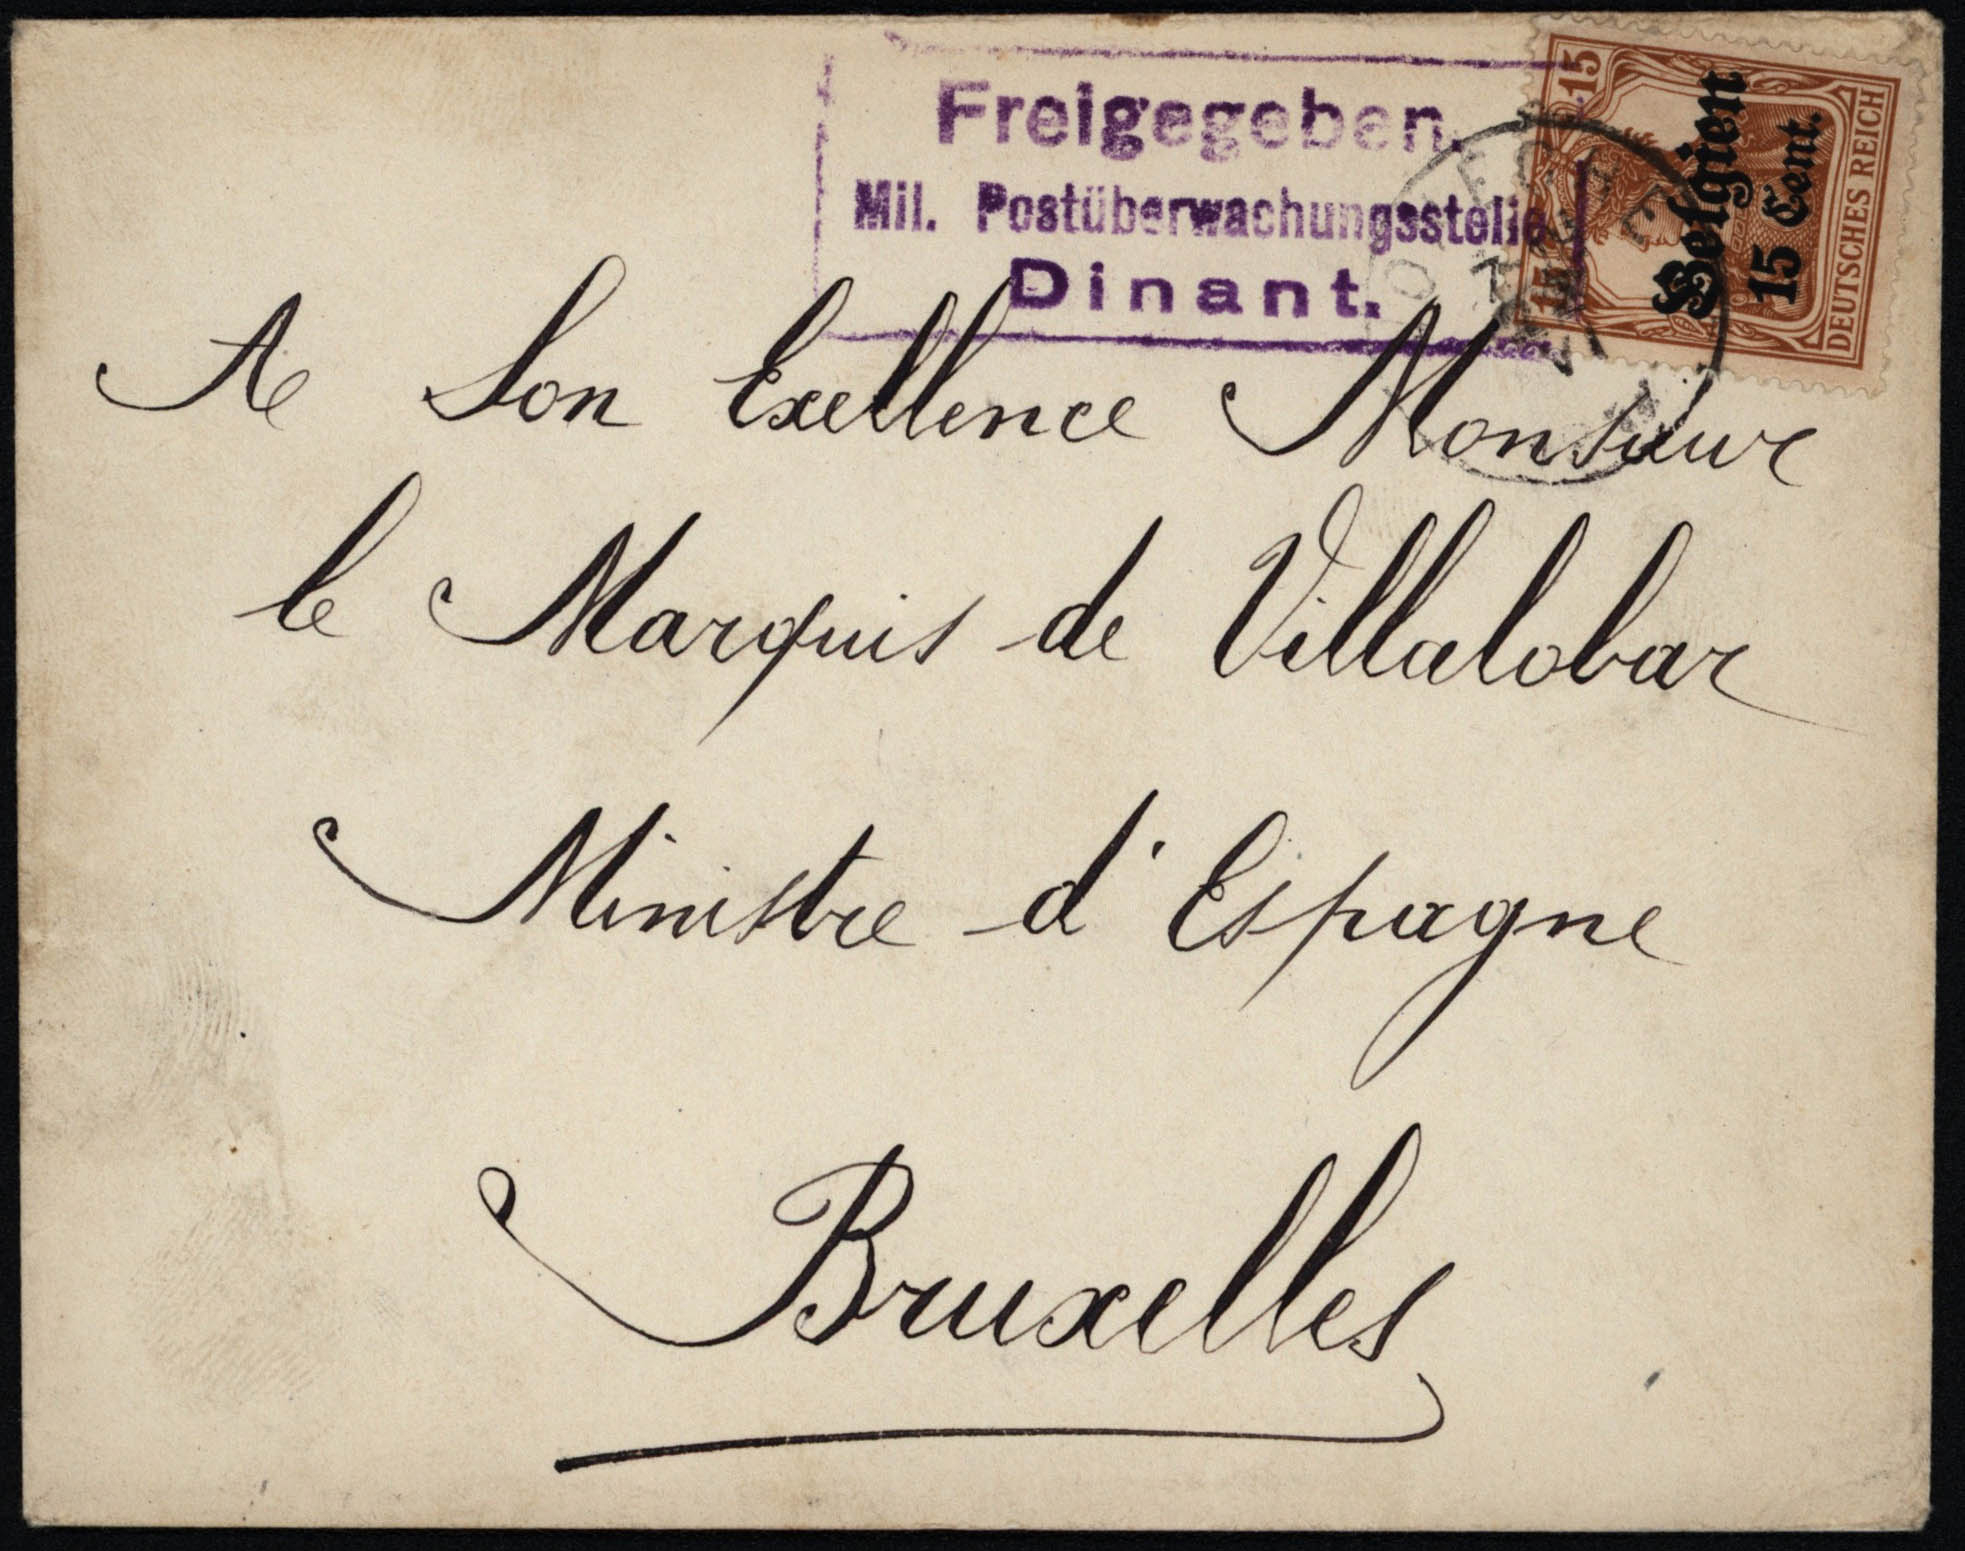 Freigegeben.
Mil. Postüberwachungsstelle
Dinant.
15
15
Belgien
15 Cent.
DEUTSCHES REICH
A Son Exellence Monsieur
le Marquis de Villalobar
Ministre d'Espagne
Bruxelles